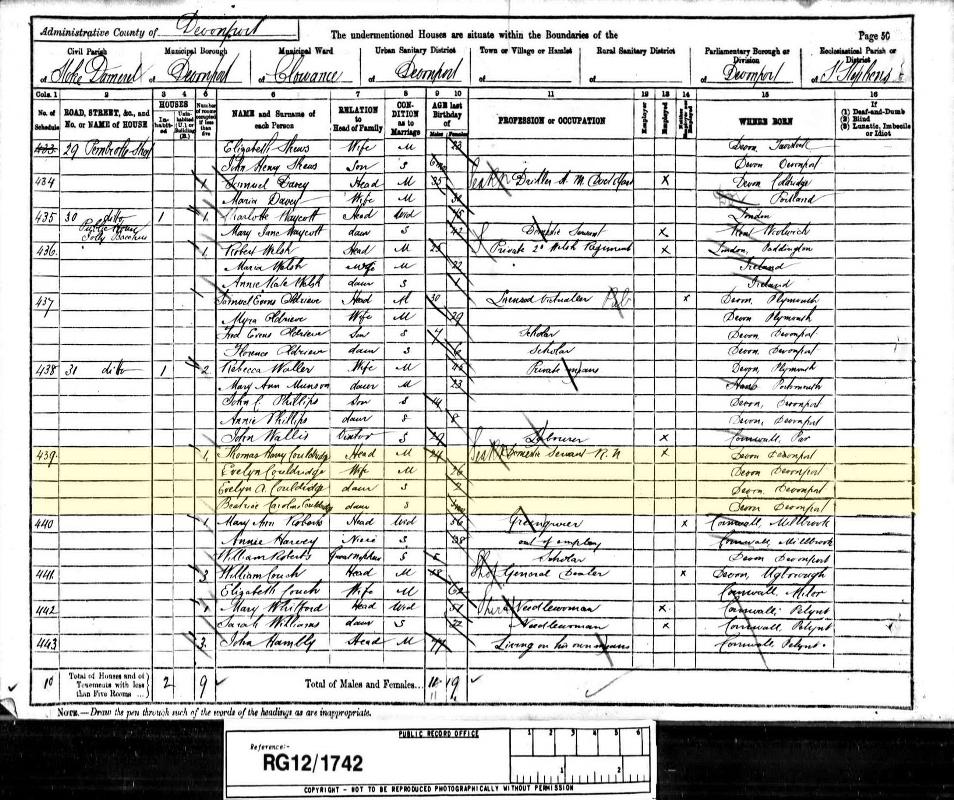 Administrative County of Devonport The undermentioned Houses are situate within the Boundaries of the Page 50
Civil Parish Municipal Borough Municipal Ward Urban Sanitary District Town or Village or Hamlet Rural Sanitary District Parliamentary Borough or Division Ecclesiastical Parish or District
of Stoke Damerel of Devonport of Clowance of Devonport of of of Devonport of St Stephens
Cols. 1 2 3 4 5 6 7 8 9 10 11 12 13 14 15 16
No. of Schedule ROAD, STREET, &c., and No. or NAME of HOUSE HOUSES Inhabited Uninhabited (U.) or Building (B.) Number of rooms occupied if less than five NAME and Surname of each Person RELATION to Head of Family CONDITION as to Marriage AGE last Birthday of Males Females PROFESSION or OCCUPATION Employer Employed Neither WHERE BORN If (1) Deaf-and-Dumb (2) Blind (3) Lunatic, Imbecile or Idiot
433 29 Pembroke Street Elizabeth Skews Wife M 23 Devon Tavistock
John Henry Skews Son Devon Devonport
434 1 Samuel Davey Head M 35 x Devon
Maria Davey Wife M Portland
435 30 ditto 1 1 Charlotte Waycott Head Wid London
Public House Mary Jane Waycott daur S Domestic Servant x Kent Woolwich
Jolly Bacchus
436 1 Robert Welsh Head M Private 2d Welsh Regiment x London, Paddington
Maria Welsh Wife M 22 Ireland
Annie Kate Welsh daur 1 Ireland
437 Samuel Evens Oldrieve Head M 30 Licensed Victualler Pub x Devon, Plymouth
Myra Oldrieve Wife M 29 Devon Plymouth
Fred Evens Oldrieve Son S 7 Scholar Devon Devonport
Florence Oldrieve daur S 6 Scholar Devon Devonport
438 31 ditto 1 2 Rebecca Waller Wife M Private means Devon, Plymouth
Mary Ann Munson daur M 23 Hants Portsmouth
John C. Phillips Son S 14 Devon, Devonport
Annie Phillips daur S 8 Devon, Devonport
John Wallis Visitor S 29 Labourer x Cornwall, Par
439 1 Thomas Harry Couldridge Head M 24 Domestic Servant R.N x Devon Devonport
Evelyn Couldridge Wife M 26 Devon Devonport
Evelyn A. Couldridge daur S 2 Devon, Devonport
Beatrice Caroline Couldridge daur S Devon Devonport
440 1 Mary Ann Roberts Head Wid 56 Greengrocer x Cornwall, Millbrook
Annie Harvey Niece S out of employ Cornwall, Millbrook
William Roberts Grand Nephew S Scholar Devon Devonport
441 3 William Couch Head M General Dealer x Devon, Ugborough
Elizabeth Couch Wife M 62 Cornwall, Milor
442 1 Mary Whitford Head Wid 51 Needlewoman x Cornwall, Pelynt
Sarah Williams daur S 22 Needlewoman x Cornwall, Pelynt
443 3 John Hambly Head M 77 Living on his own means Cornwall, Pelynt
10 Total of Houses and of Tenements with less than Five Rooms 2 9 Total of Males and Females... 11 19
NOTE.—Draw the pen through such of the words of the headings as are inappropriate.
PUBLIC RECORD OFFICE
Reference:-
RG12/1742
1 2 3 4 5 6
1 2
COPYRIGHT - NOT TO BE REPRODUCED PHOTOGRAPHICALLY WITHOUT PERMISSION